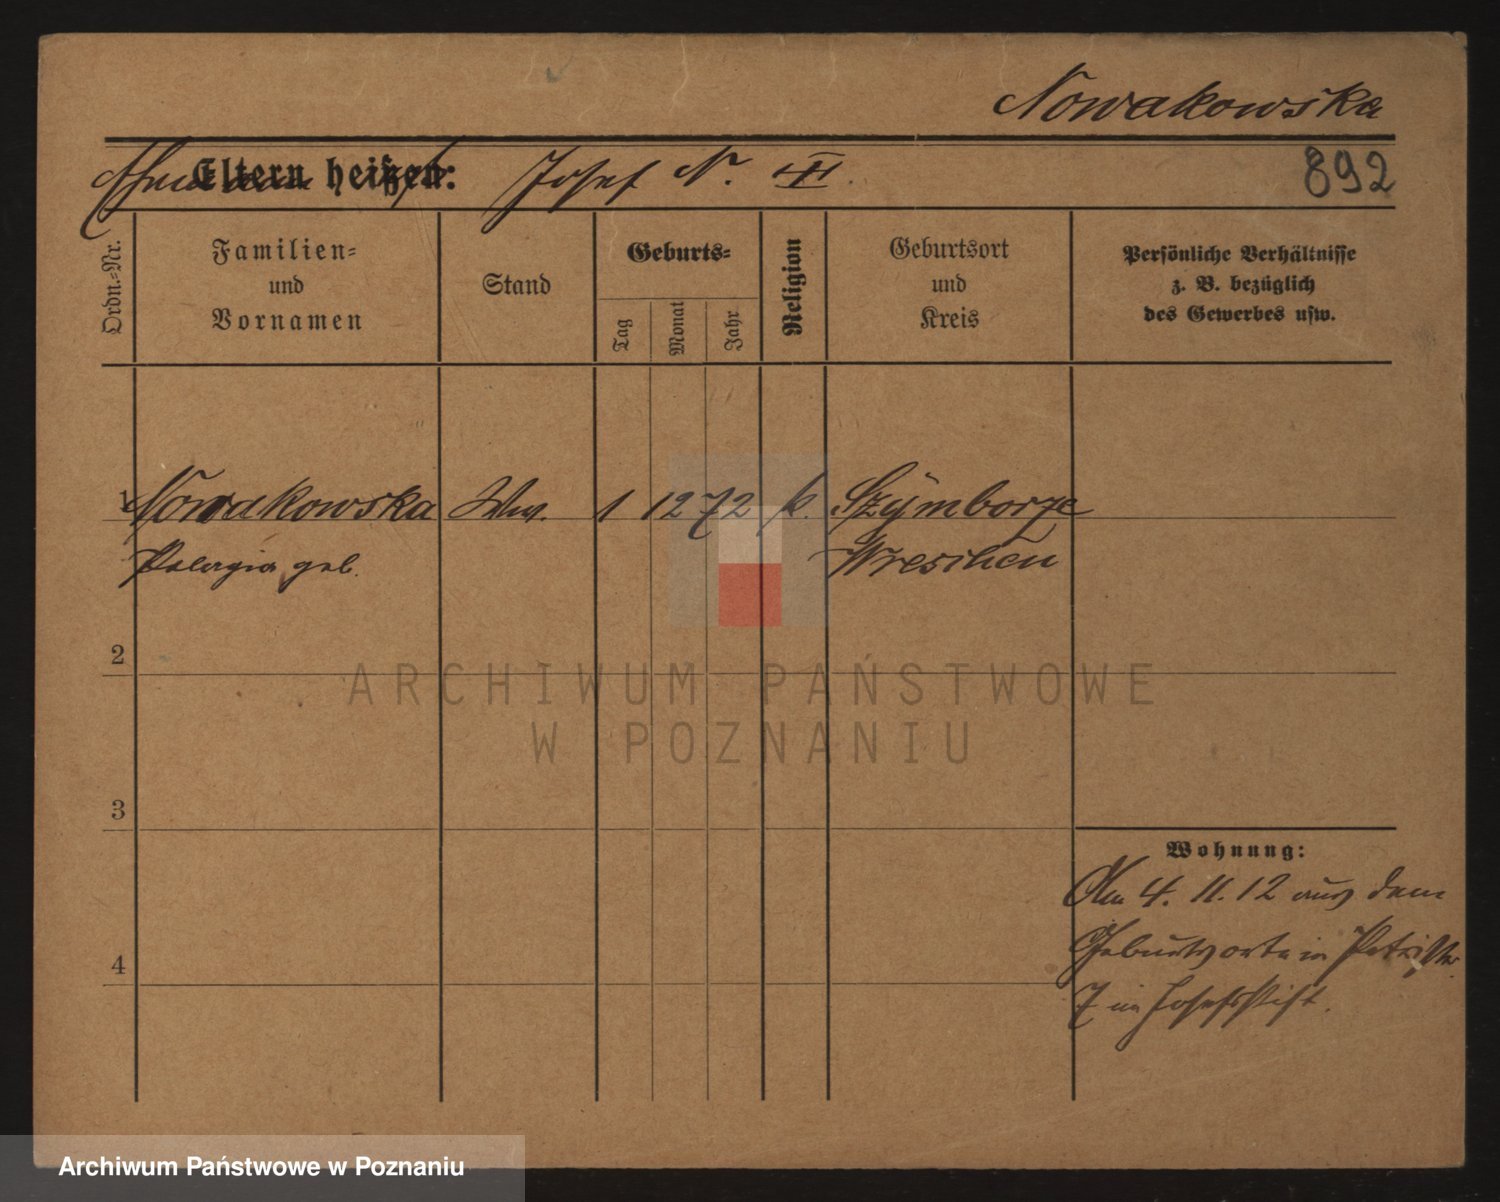 Nowakowska
Ehemann Eltern heißen: Josef N. III.
892
Ordn.=Nr.
Familien=
und
Vornamen
Stand
Geburts=
Tag
Monat
Jahr
Religion
Geburtsort
und
Kreis
Persönliche Verhältnisse
z. B. bezüglich
des Gewerbes usw.
1 Nowakowska Ww. 1 12 72 k. Szymborze
Pelagia geb. Wreschen
2
3
4
Wohnung:
Am 4. 11. 12 aus dem
Geburtsorte in Petristr.
7 im Josefsstift.
ARCHIWUM PAŃSTWOWE
W POZNANIU
Archiwum Państwowe w Poznaniu